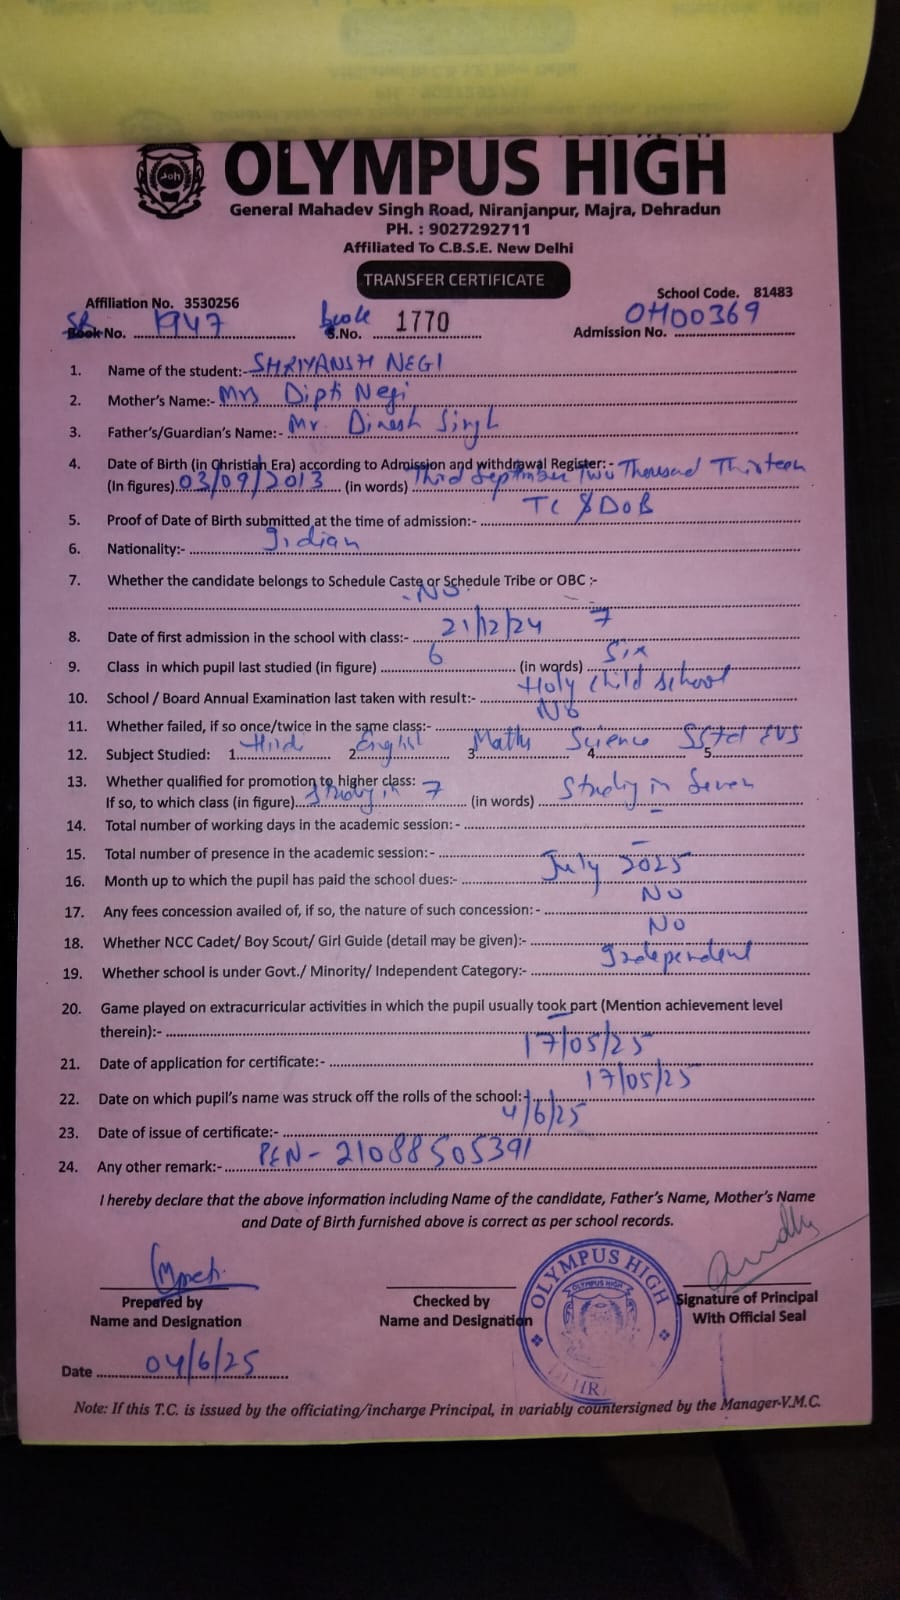 OLYMPUS HIGH
General Mahadev Singh Road, Niranjanpur, Majra, Dehradun
PH. : 9027292711
Affiliated To C.B.S.E. New Delhi
TRANSFER CERTIFICATE
Affiliation No. 3530256 School Code. 81483
SR Book No. 1947 book S.No. 1770 Admission No. OH00369
1. Name of the student:- SHRIYANSH NEGI
2. Mother's Name:- Mrs Dipti Negi
3. Father's/Guardian's Name:- Mr. Dinesh Singh
4. Date of Birth (in Christian Era) according to Admission and withdrawal Register: -
(In figures) 03/09/2013 (in words) Third September Two Thousand Thirteen
5. Proof of Date of Birth submitted at the time of admission:- TC & DOB
6. Nationality:- Indian
7. Whether the candidate belongs to Schedule Caste or Schedule Tribe or OBC :-
- No -
8. Date of first admission in the school with class:- 21/12/24 7
9. Class in which pupil last studied (in figure) 6 (in words) Six
10. School / Board Annual Examination last taken with result:- Holy Child School
11. Whether failed, if so once/twice in the same class:- No
12. Subject Studied: 1. Hindi 2. English 3. Maths 4. Science 5. SStd EVS
13. Whether qualified for promotion to higher class:
If so, to which class (in figure) Studying in 7 (in words) Studying in Seven
14. Total number of working days in the academic session: - –
15. Total number of presence in the academic session:- –
16. Month up to which the pupil has paid the school dues:- July 2025
17. Any fees concession availed of, if so, the nature of such concession: - No
18. Whether NCC Cadet/ Boy Scout/ Girl Guide (detail may be given):- No
19. Whether school is under Govt./ Minority/ Independent Category:- Independent
20. Game played on extracurricular activities in which the pupil usually took part (Mention achievement level
therein):- –
21. Date of application for certificate:- 17/05/25
22. Date on which pupil's name was struck off the rolls of the school:- 17/05/25
23. Date of issue of certificate:- 4/6/25
24. Any other remark:- PEN - 21088505391
I hereby declare that the above information including Name of the candidate, Father's Name, Mother's Name
and Date of Birth furnished above is correct as per school records.
OLYMPUS HIGH
OLYMPUS HIGH
Prepared by Checked by Signature of Principal
Name and Designation Name and Designation With Official Seal
Date 04/6/25
Note: If this T.C. is issued by the officiating/incharge Principal, in variably countersigned by the Manager-V.M.C.